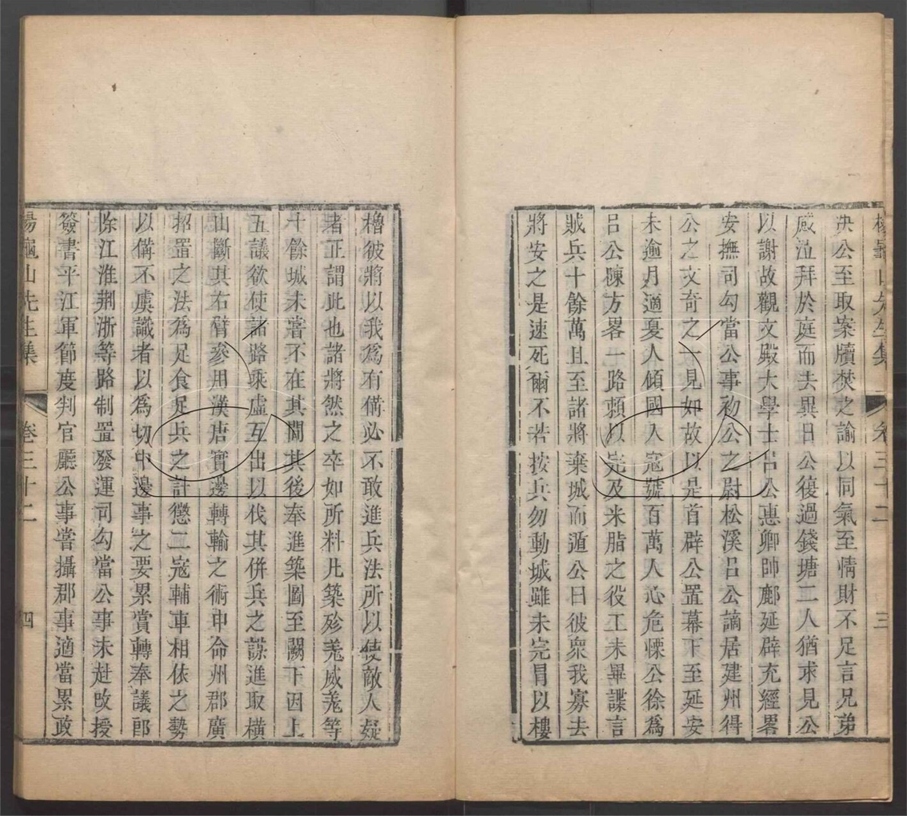 楊龜山先生集 卷三十二 三
決公至取案牘焚之諭以同氣至情財不足言兄弟
感泣拜於庭而去異日公後過錢塘二人猶求見公
以謝故觀文殿大學士呂公惠卿帥鄜延辟充經畧
安撫司勾當公事初公之尉松溪呂公謫居建州得
公之文奇之一見如故以是首辟公置幕下至延安
未逾月適夏人傾國入寇號百萬人心危慄公徐為
呂公陳方畧一路頼以完及米脂之役工未畢諜言
賊兵十餘萬且至諸將棄城而遁公曰彼衆我寡去
將安之是速死爾不若按兵勿動城雖未完冒以樓
櫓彼將以我為有備必不敢進兵法所以使敵人疑
者正謂此也諸將然之卒如所料凡築殄羗威羗等
十餘城未嘗不在其間其後奉進築圖至闕下因上
五議欲使諸路乘虛互出以伐其併兵之謀進取橫
山斷其右臂參用漢唐實邊轉輸之術申命州郡廣
招置之法為足食足兵之計懲二寇輔車相依之勢
以備不虞識者以為切中邊事之要累賞轉奉議郎
除江淮荆浙等路制置發運司勾當公事未赴改授
簽書平江軍節度判官廳公事嘗攝郡事適當累政
楊龜山先生集 卷三十二 四